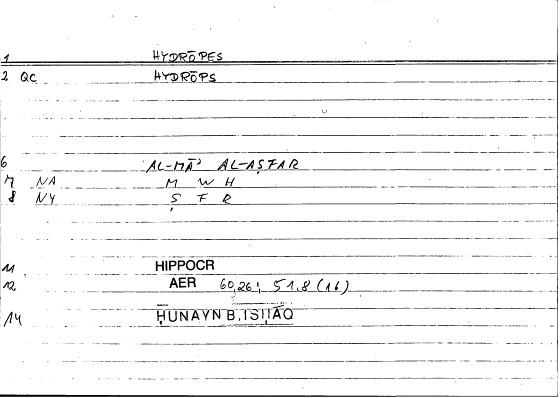 1 HYDRŌPES
2 QC HYDRŌPS
6 AL-MĀʾ AL-AṢFAR
7 NA M W H
8 NY Ṣ F R
11 HIPPOCR
12 AER 60,26; 51,8 (16)
14 ḤUNAYN B. ISḤĀQ